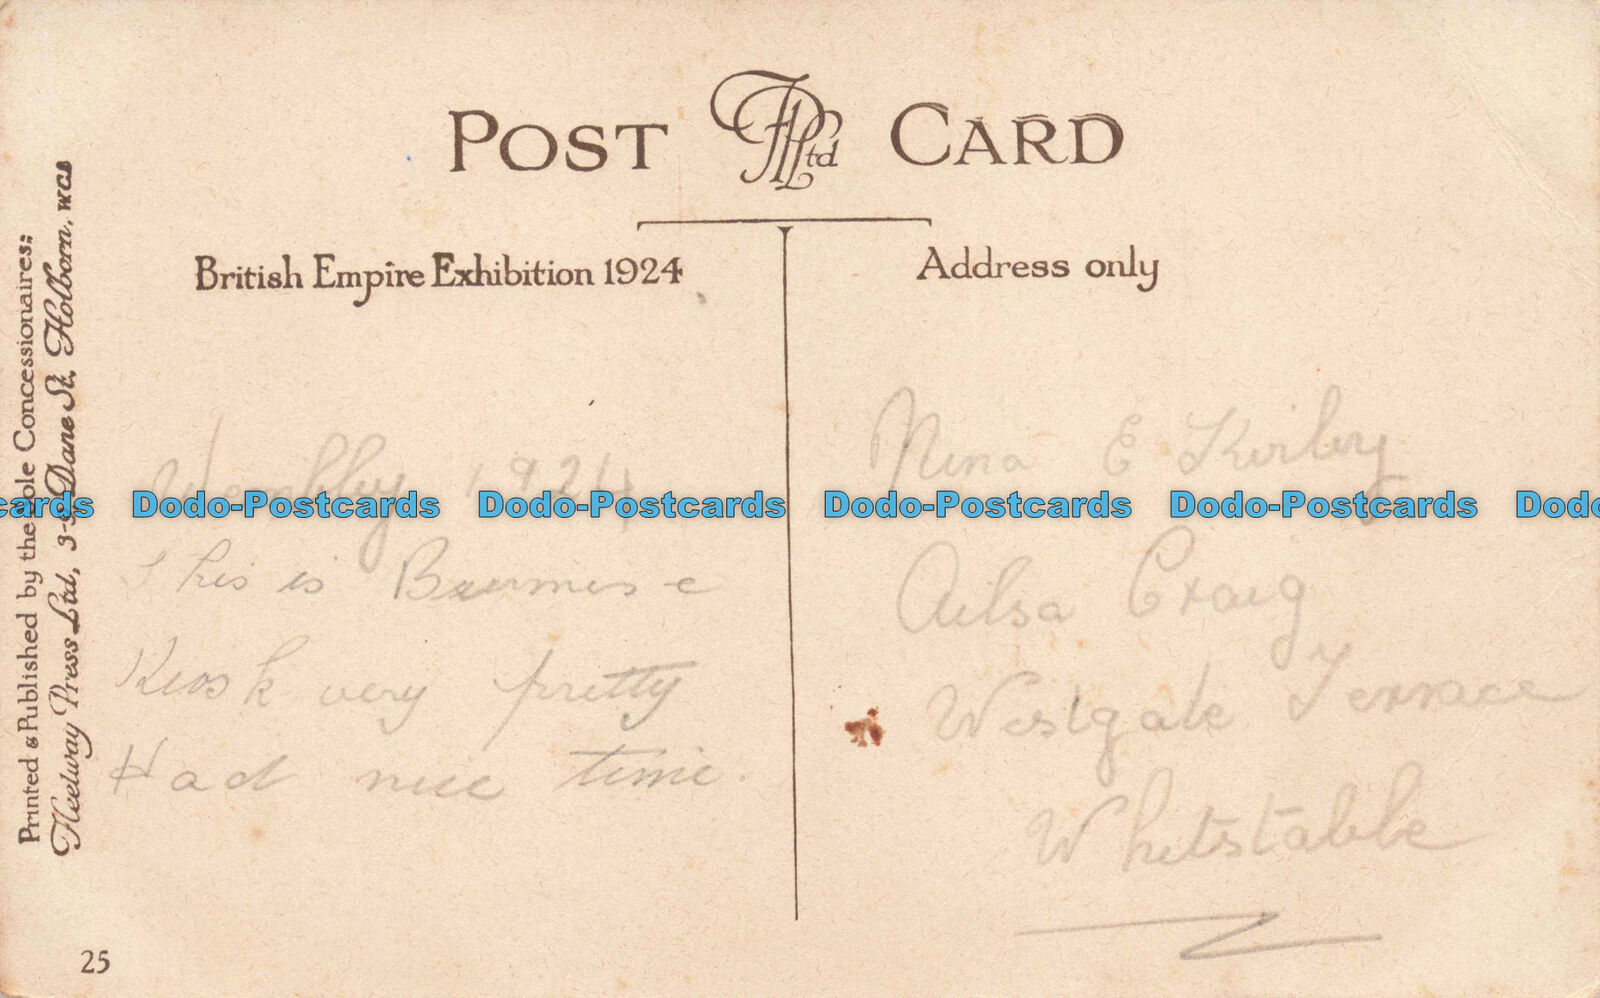 POST FPLtd CARD
British Empire Exhibition 1924
Address only
Printed & Published by the Sole Concessionaires:
Fleetway Press Ltd, 3-9 Dane St. Holborn, WC1
Wembley 1924
This is Burmese
Kiosk very pretty
Had nice time.
Nina E Kirby
Ailsa Craig
Westgate Terrace
Whitstable
25
cards Dodo-Postcards Dodo-Postcards Dodo-Postcards Dodo-Postcards Dodo